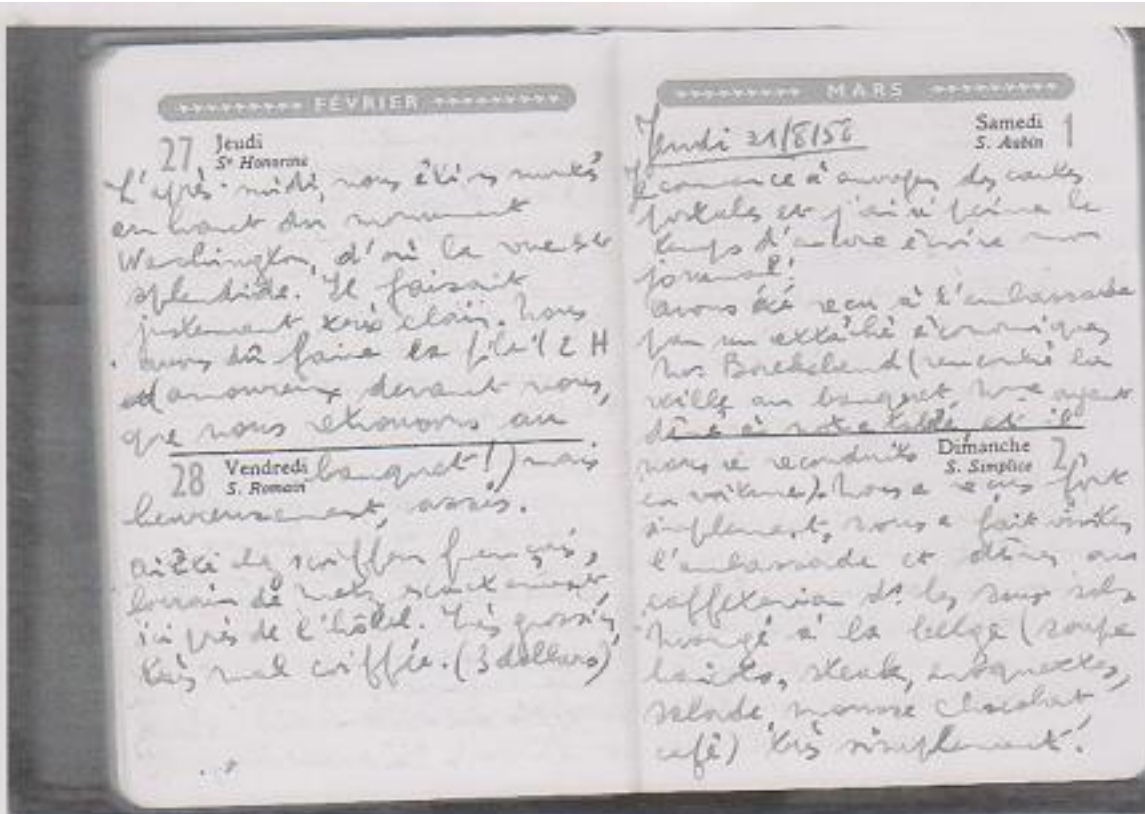 FÉVRIER
27 Jeudi
Se Honorine
L'après-midi, nous étions montés
en haut du monument
Washington, d'où la vue est
splendide. Il faisait
justement très clair. Nous
avons dû faire la file 1/2 H
amoureux devant nous,
que nous retrouvons au
28 Vendredi
S. Romain
banquet!) mais
heureusement, assis.
été de coiffeur français,
lorrain de Metz exactement,
ici près de l'hôtel. Très grossier,
très mal coiffée. (3 dollars)
MARS
Samedi 1
S. Aubin
Jeudi 21/8/58
Je commence à envoyer des cartes
postales et j'ai à peine le
temps d'encore écrire mon
journal!
avons été reçu à l'ambassade
par un attaché économique,
Mr (rencontré en
ville au banquet, nous ayant
dîné à notre table et il
Dimanche 2
S. Simplice
nous a reconduits
en voiture). Nous a reçus fort
simplement, nous a fait visiter
l'ambassade et dîner au
caffetaria ds les sous sols
Mangé à la belge (soupe
steak, croquettes,
salade, mousse chocolat
café) très simplement.